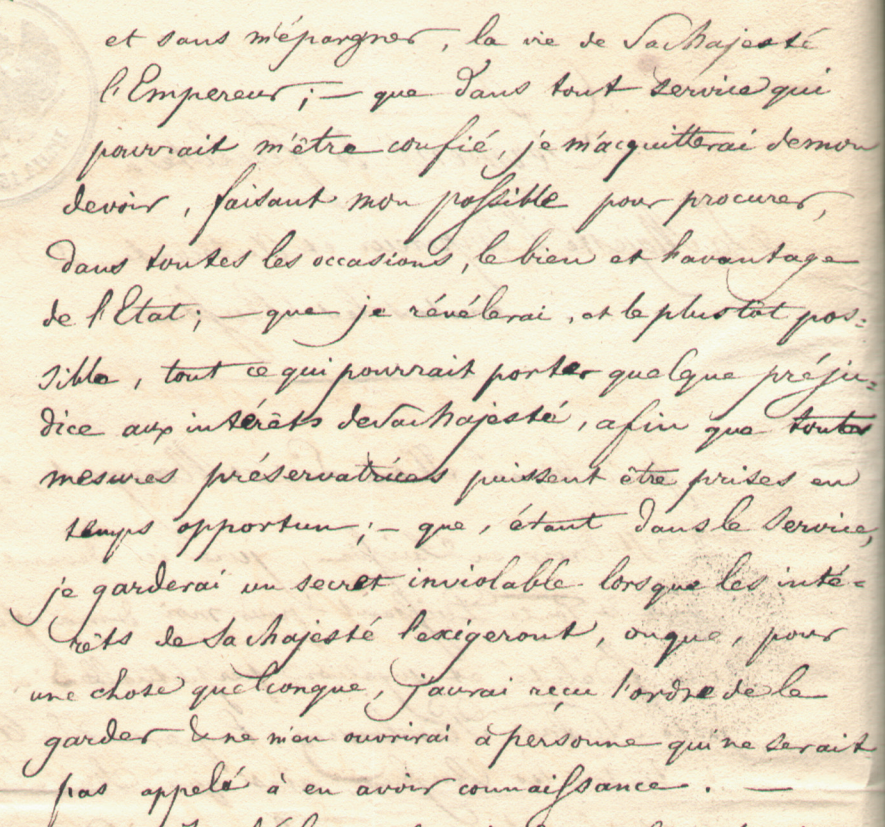 et sans m'épargner, la vie de Sa Majesté
l'Empereur; — que dans tout service qui
pourrait m'être confié, je m'acquitterai de mon
devoir, faisant mon possible pour procurer,
dans toutes les occasions, le bien et l'avantage
de l'Etat; — que je révélerai, et le plustôt pos=
sible, tout ce qui pourrait porter quelque préju=
dice aux intérêts de Sa Majesté, afin que toutes
mesures préservatrices puissent être prises en
temps opportun; — que, étant dans le service,
je garderai un secret inviolable lorsque les inté=
rêts de Sa Majesté l'exigeront, ou que, pour
une chose quelconque, j'aurai reçu l'ordre de le
garder & ne m'en ouvrirai à personne qui ne serait
pas appelé à en avoir connaissance. —